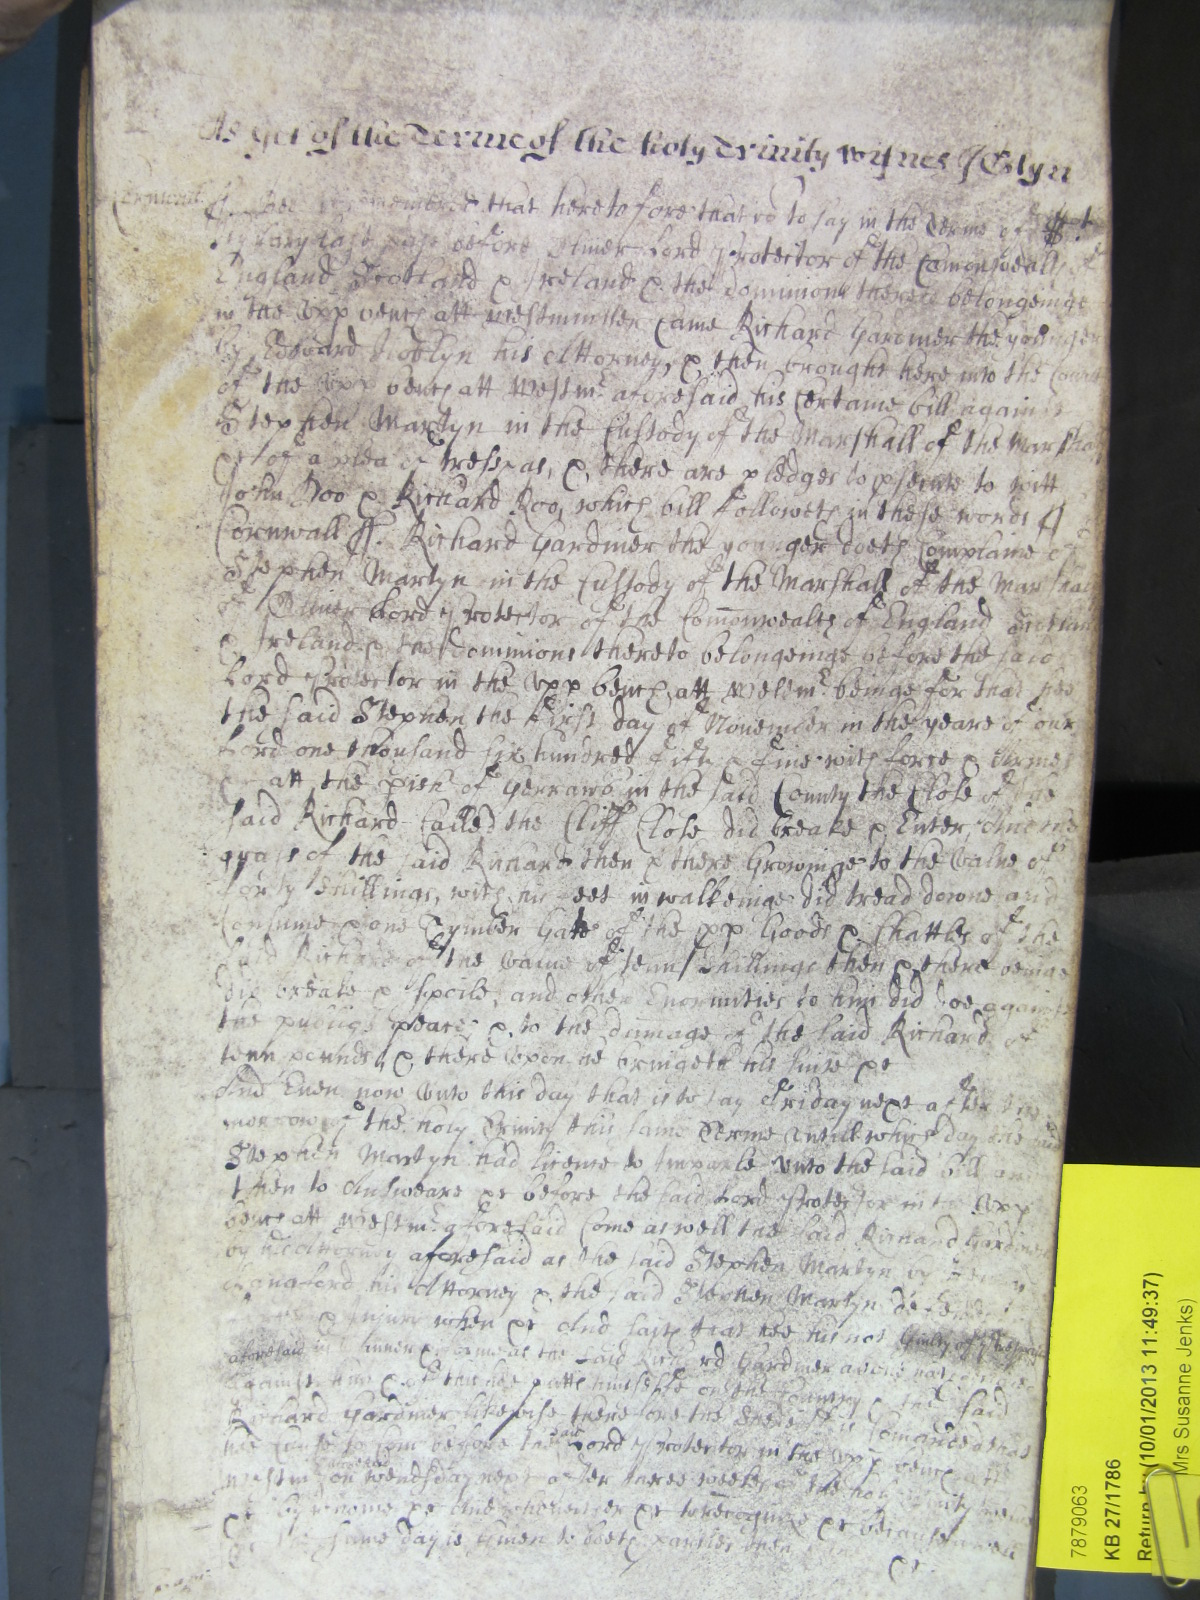 As yet of the Terme of the holy Trinity witnes JOslyn
Cornwall ss. Bee it remembred that heretofore that is to say in the Terme of St
Hyllary last past before Oliver Lord Protector of the Comonwealth of
England Scotland & Ireland & the dominions thereto belongeinge
in the upp bench att Westminster Came Richard Gardiner the younger
by Edward Noslyn his Attorney, & then brought here into the Court
of the upp bench att Westmr aforesaid his Certaine bill against
Stephen Martyn in the Custody of the Marshall of the Marshal
&c of a plea of trespas, & there are pledges to psecute to witt
John Doo & Richard Roo, which bill followeth in these words ss
Cornwall ss. Richard Gardiner the younger doeth Complaine of
Stephen Martyn in the Custody of the Marshall of the Marshal
of Oliver Lord Protector of the Comonwealth of England Scotland
& Ireland & the Dominions thereto belongeinge before the said
Lord Protector in the upp bench att Westmr beinge for that hee
the said Stephen the first day of November in the yeare of our
Lord one thousand six hundred fifty & five with force & Armes
&c att the pish of Gerrans in the said County the Close of the
said Richard Called the Cliff Close did breake & Enter, And the
grass of the said Richard then & there Growinge to the Value of
forty shillings, with his feet in walkeinge did tread downe and
Consume & one Tymber Gate of the pp Goods & Chattles of the
said Richard of the value of tenn shillings then & there beinge
did breake & spoile, and other Enormities to him did doe against
the publiq peace & to the damage of the said Richard of
tenn pounds, & there upon he bringeth his suite &c
And Even now unto this day that is to say Friday next after the
morrow of the holy Trinity this same Terme Untill which day the said
Stephen Martyn had licence to Imparle unto the said bill and
then to Answeare &c before the said Lord Protector in the upp
bench att Westmr aforesaid Come as well the said Richard Gardiner
by his Attorney aforesaid as the said Stephen Martyn by
his Attorney & the said Stephen Martyn defends
& Injury when &c And saith that hee his not Guilty of the trespas
aforesaid in manner & forme as the said Richard Gardiner above hath
against him & of this hee putts himselfe on the Country & the said
Richard Gardiner likewise therefore the Sheriff is Comanded that
hee Cause to Com before the said Lord Protector in the upp bench att
Westmr aforesaid on wendsday next after three weekes of the holy Trinity
&c by whome &c And who neither &c to recognize &c because as well
&c the same day is given to both parties there &c
7879063
KB 27/1786
Return by (10/01/2013 11:49:37)
Mrs Susanne Jenks)